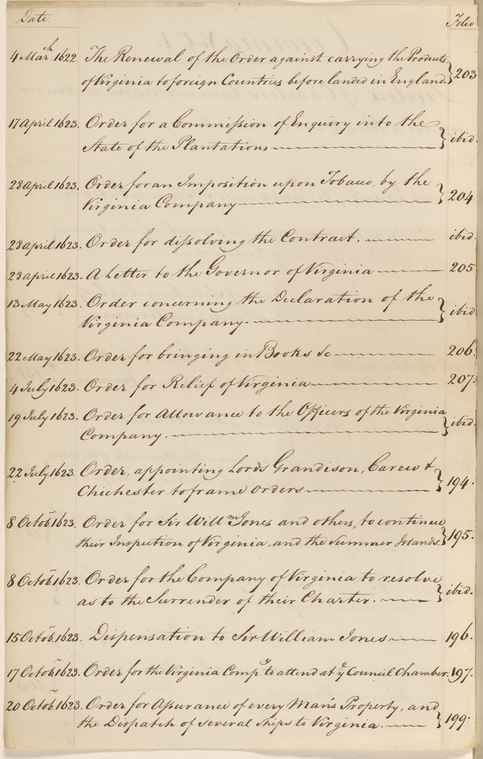 Date Folio
4 Mar.ch 1622. The Renewal of the Order against carrying the Products
of Virginia to foreign Countries before landed in England. } 203
17 April 1623. Order for a Commission of Enquiry into the
State of the Plantations } ibid.
28 April 1623. Order for an Imposition upon Tobacco, by the
Virginia Company } 204
28 April 1623. Order for dissolving the Contract. ibid.
28 April 1623. A Letter to the Governor of Virginia 205
13 May 1623. Order concerning the Declaration of the
Virginia Company. } ibid.
22 May 1623. Order for bringing in Books &c 206.
4 July 1623. Order for Relief of Virginia 207.
19 July 1623. Order for Allowance to the Officers of the Virginia
Company. } ibid.
22 July 1623. Order, appointing Lords Grandison, Carew &
Chichester to frame Orders } 194.
8 Octob.r 1623. Order for Sir Will.m Jones and others, to continue
their Inspection of Virginia, and the Summer Islands. } 195.
8 Octob.r 1623. Order for the Company of Virginia to resolve
as to the Surrender of their Charter. } ibid.
15 Octob.r 1623. Dispensation to Sir William Jones 196.
17 Octob.r 1623. Order for the Virginia Comp.y to attend at ye Council Chamber. 197.
20 Octob.r 1623. Order for Assurance of every Man's Property, and
the Dispatch of several Ships to Virginia. } 199.